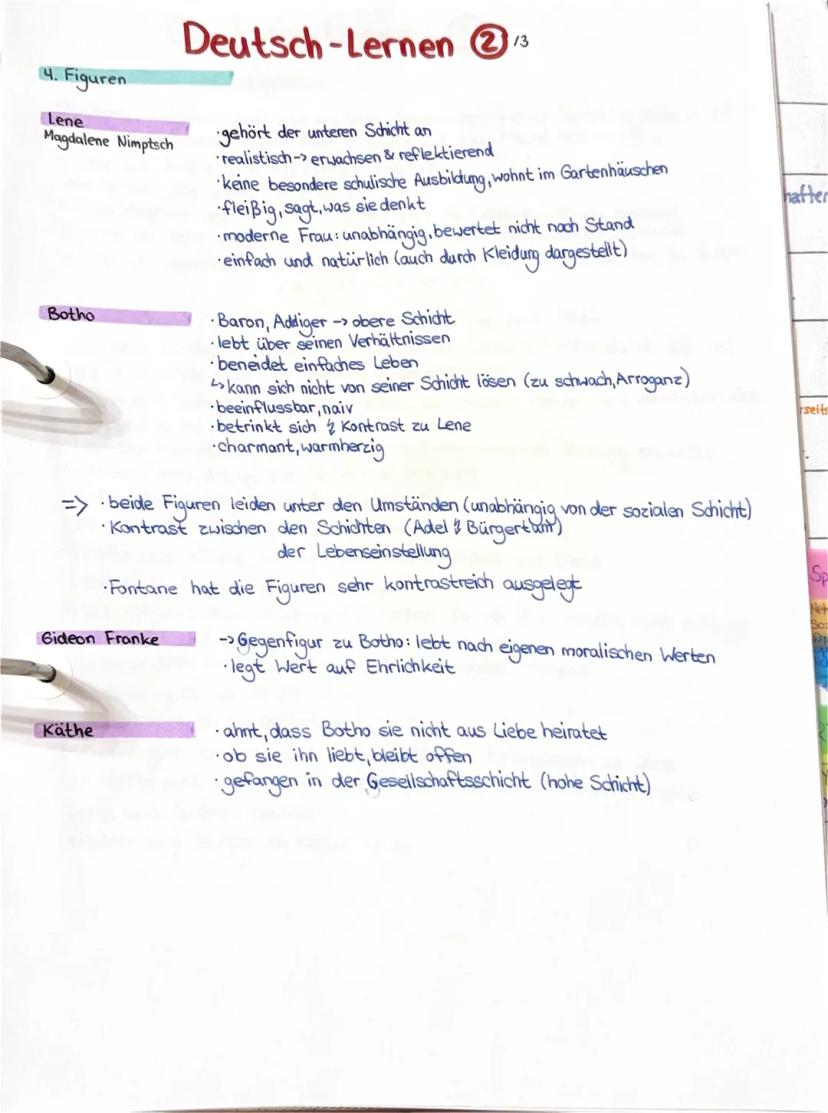 Deutsch-Lernen ② /3
4. Figuren
Lene
Magdalene Nimptsch
·gehört der unteren Schicht an
·realistisch-> erwachsen & reflektierend
·keine besondere schulische Ausbildung, wohnt im Gartenhäuschen
·fleißig, sagt, was sie denkt
·moderne Frau: unabhängig, bewertet nicht nach Stand
·einfach und natürlich (auch durch Kleidung dargestellt)
Botho
·Baron, Addiger -> obere Schicht
·lebt über seinen Verhältnissen
·beneidet einfaches Leben
↳ kann sich nicht von seiner Schicht lösen (zu schwach, Arroganz)
·beeinflussbar, naiv
·betrinkt sich ↯ Kontrast zu Lene
·charmant, warmherzig
=> ·beide Figuren leiden unter den Umständen (unabhängig von der sozialen Schicht)
·Kontrast zwischen den Schichten (Adel ↯ Bürgertum)
der Lebenseinstellung
·Fontane hat die Figuren sehr kontrastreich ausgelegt
Gideon Franke
-> Gegenfigur zu Botho: lebt nach eigenen moralischen Werten
·legt Wert auf Ehrlichkeit
Käthe
·ahnt, dass Botho sie nicht aus Liebe heiratet
·ob sie ihn liebt, bleibt offen
·gefangen in der Gesellschaftsschicht (hohe Schicht)
hafter
rseits
Sp